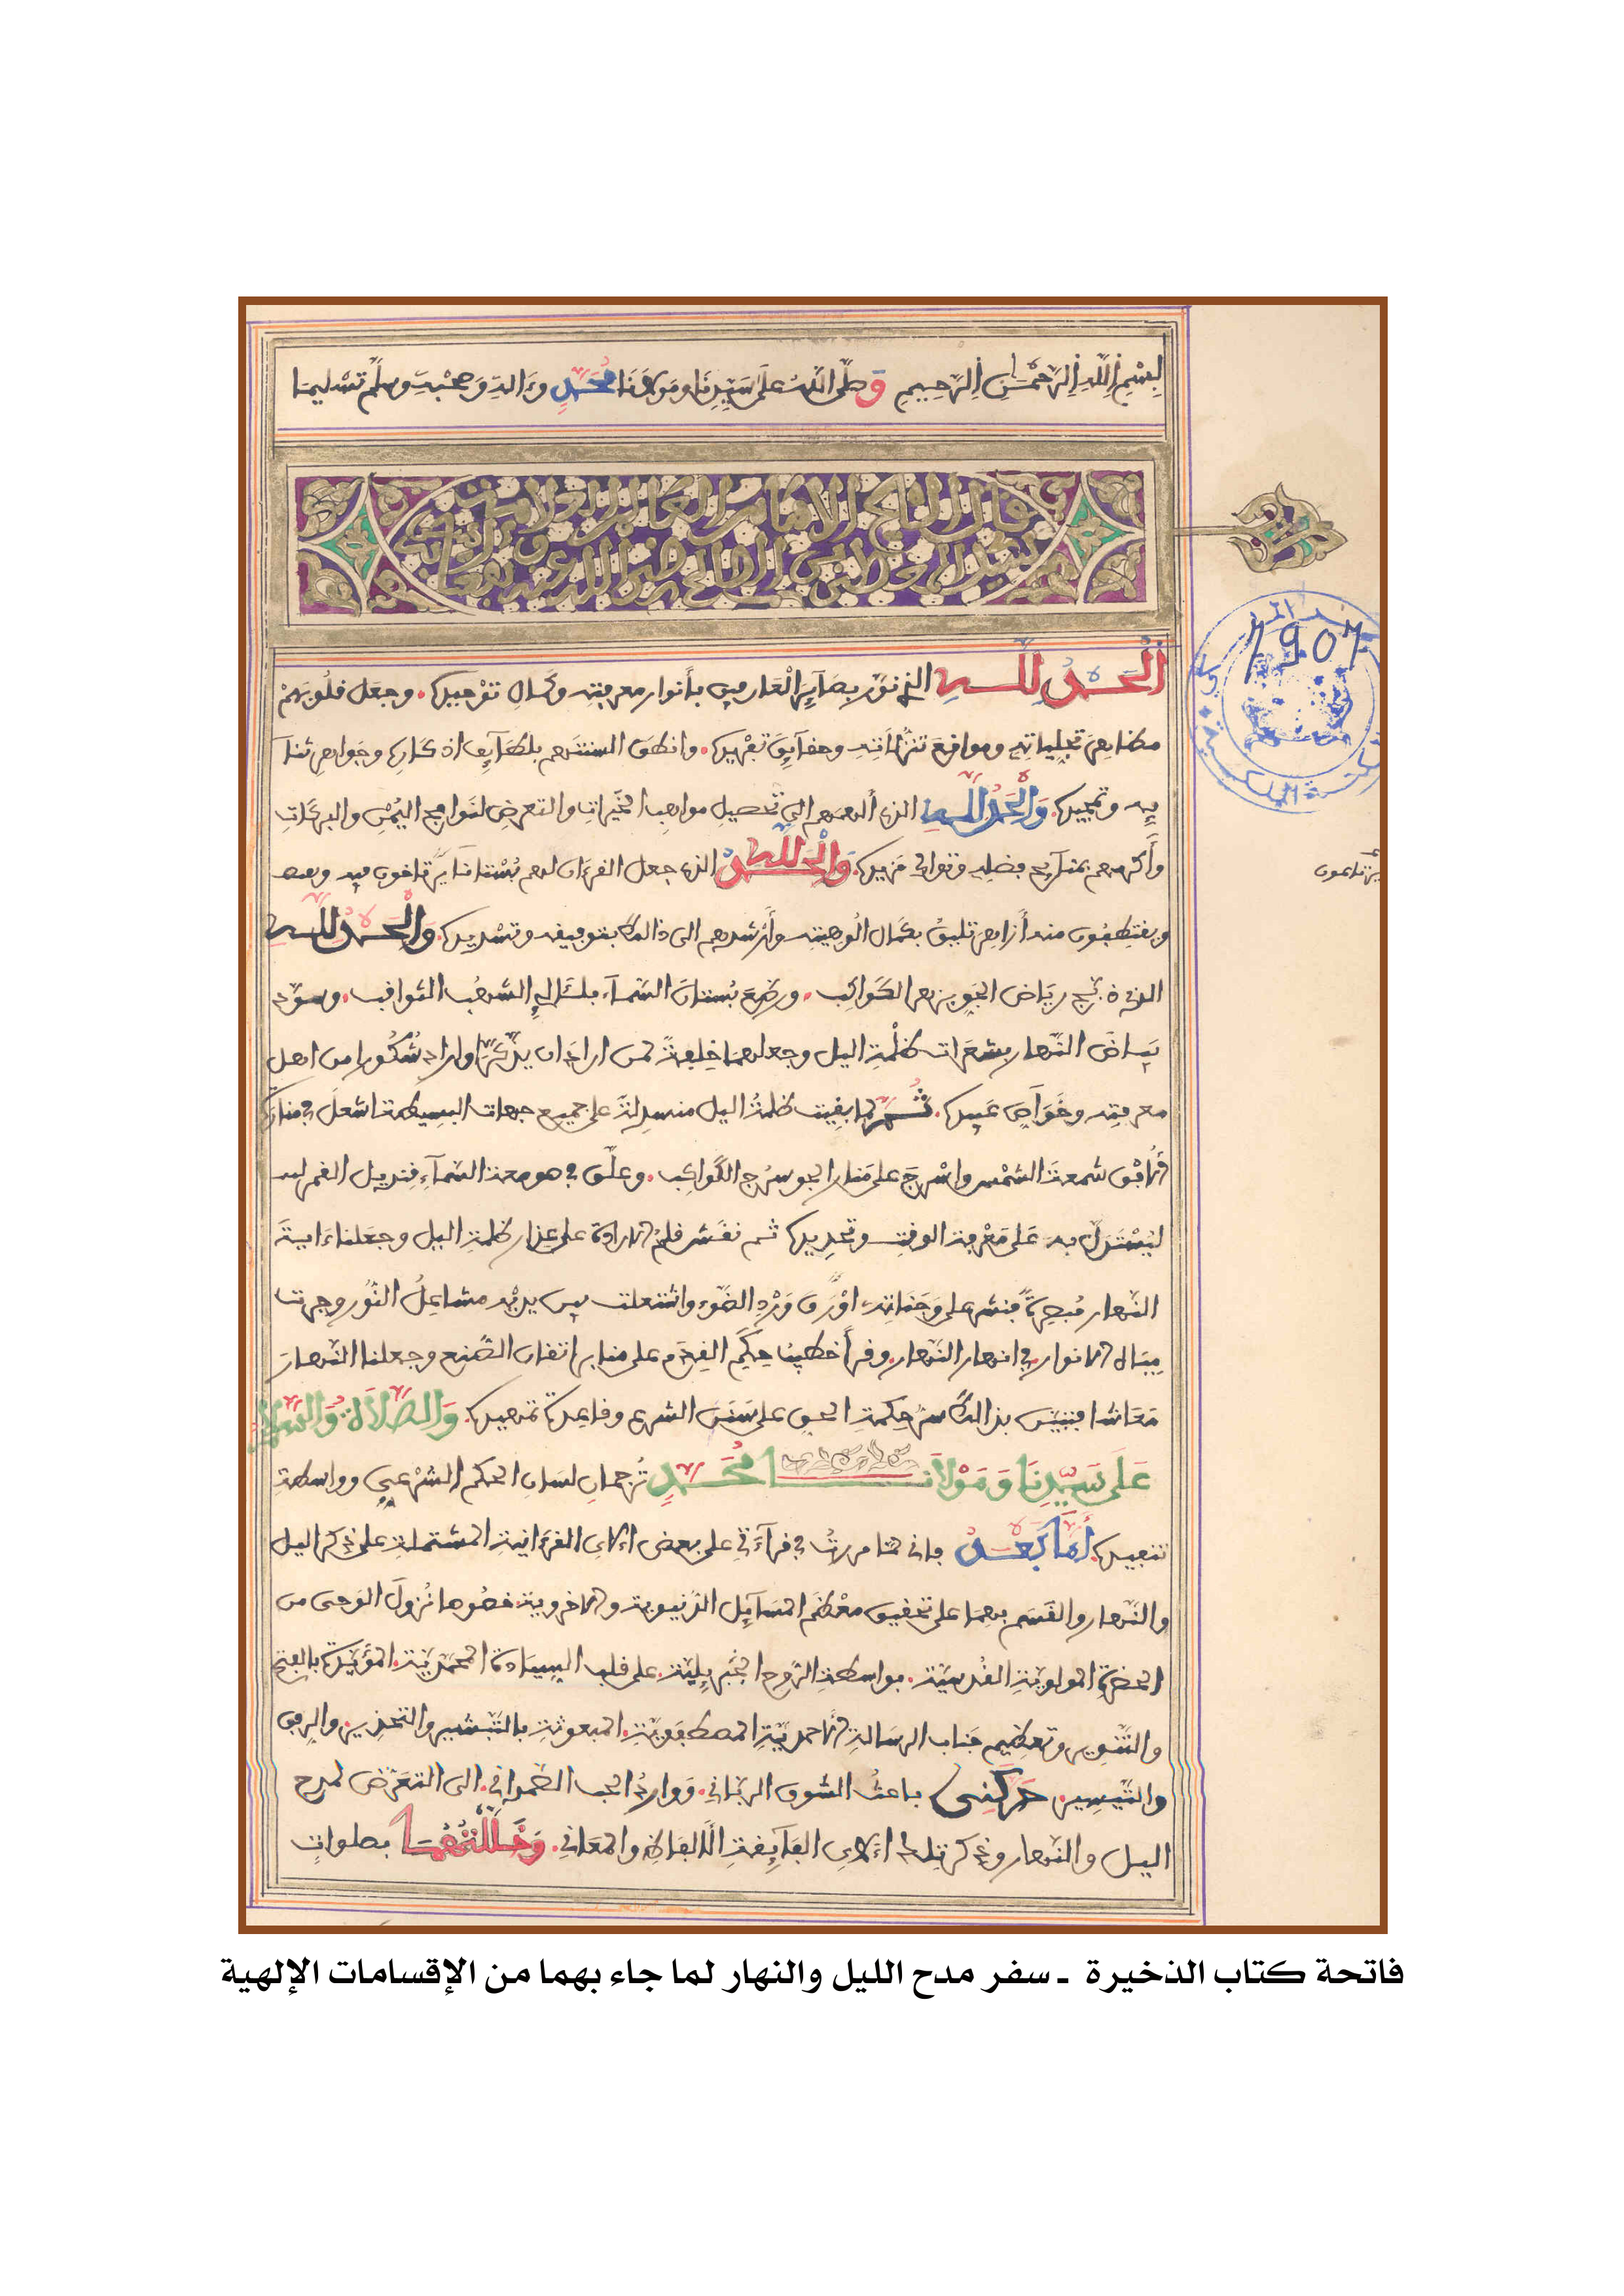 بِسْمِ اِللَّهِ اِلرَّحْمَٰنِ اِلرَّحِيمِ وَصَلَّى اللَّهُ عَلَى سَيِّدِنَا وَمَوْلَانَا مُحَمَّدٍ وَءَالِهِ وَصَحْبِهِ وَسَلَّمَ تَسْلِيمَا
قال الشيخ الامام العالم العلامة
سيدي محمد المعطي بن الصالح
اَلْحَمْدُ لِلَّهِ الذي نَوَّرَ بصَآئِرَ الْعَارفين بأَنوار معرفته وكَمالِ تَوْحِيدِه. وجعل قلُوبَهُمْ
مظاهِرَ تجلياتِهِ ومواقعَ تنزُّلَاتِهِ وحقآئِقَ تفْرِيدِه. وانطقَ السنتهم بلطَآئِفِ اذكَارِهِ وجَواهِرِ ثنآ
ئِهِ وتمجيدِه. وَالْحَمْدُ لِلَّهِ الذي ألهمهم الى تحصيلِ مواهِبِ الخَيْراتِ والتعرضِ لنَوافِحِ اليُمْنِ والبركَاتِ
وأَكرمهم بمنآئِحِ فضلِهِ وتوالي مَزِيدِه. وَالْحَمْدُ لِلَّهِ الذي جعل القرءان لهم بُسْتانًا يَرْتاضون فيه
ويقتطِفُون منه أزاهِرَ تليقُ بكمال ألُوهيته وأَرْشدهم الى ذالك بتوفيقه وتسْديدِه. وَالْحَمْدُ لِلَّهِ
الذي دَبَّجَ رِيَاضَ الجَوِّ بزهرِ الكَواكِبِ. ورصَّعَ بُستانَ السَّمآءِ بلئَالِئِ الشهُبِ الثواقب. وسوَّدَ
بَيَاضَ النَّهار بشَعَراتِ ظُلْمَةِ اليل وجعلهما خِلفةً لمن اراد ان يذَّكَّرَ او اراد شُكُورا من اهل
معرفتِه وخَوَآصِّ عَبِيدِه. ثُمَّ لما بقِيت ظلمةُ اليل منسدِلةً على جميع جهات البسيطة اشعل في منارَةِ
الافق شمعةَ الشمْسِ واسْرجَ على مَنارِ الجو سُرُجَ الكَواكِبِ. وعلَّق في صومعة السَّمآءِ قِنديل القمر
ليُسْتَدلَّ به عَلى مَعْرفة الوقتِ وتحدِيدِه ثم نقَشَ قلمُ الارادة على عِذارِ ظلمةِ اليل وجعَلنا ءَايةَ
النهار مُبصِرةً فنشر على وَجَناتِهِ اوْرَاقَ وَرْدِ الضَّوْءِ واشتعلت بين يديْهِ مشاعِلُ النُّورِ وجرت
مِيَاهُ الانوارِ في انهارِ النَّهار. وقرأَ خطيبُ حِكَمِ القِدَمِ على منابرِ اتقان الصُّنع وجعلنا النهارَ
مَعَاشا فتبيَّن بذالك سرُّ حِكمةِ الحق على سَنَنِ الشرع وقاعِدَةِ تمهيدِه. وَالصَّلَاةُ وَالسَّلَامُ
عَلَى سَيِّدِنَا وَمَوْلَانَا مُحَمَّدٍ تُرجمانِ لسَانِ الحكم الشرْعِيِّ وواسطةِ
تنفيذه. أَمَّا بَعْدُ فاني لما مررتُ في قرآءَتي على بعض الآي القرءانية المشتملةِ على ذِكرِ اليل
والنَّهار والقَسَمِ بهما على تحقيق معْظَمِ المسَآئِلِ الدُّنيوية والاخروية خصُوصا نُزولَ الوَحْيِ من
الحضرةِ المولويَّةِ القُدسيَّة. بواسطةِ الرُّوحِ الجِبْرِيليَّة على قلب السِيَادةِ المحمَّدِيَّة. المؤَيَّدَة بالفتح
والتَّنوير وتعظِيم جَناب الرسَالةِ الاحمديَّةِ المصطفَوِيَّة. المبعوثةِ بالتَّبْشير والتحْذير والرفق
والتَّيسِير حَرَّكَنِي باعثُ الشوق الربَّاني. وَواردُ الحب الصَّمداني. الى التعَرُّضِ لمدح
اليل والنهار وذِكر تلك الآي الفآئِقةِ الالفاظِ والمعَاني. وَخَلَّلْتُهُمَا بصلواتٍ
7907
يرتاضون
فاتحة كتاب الذخيرة ـ سفر مدح الليل والنهار لما جاء بهما من الإقسامات الإلهية